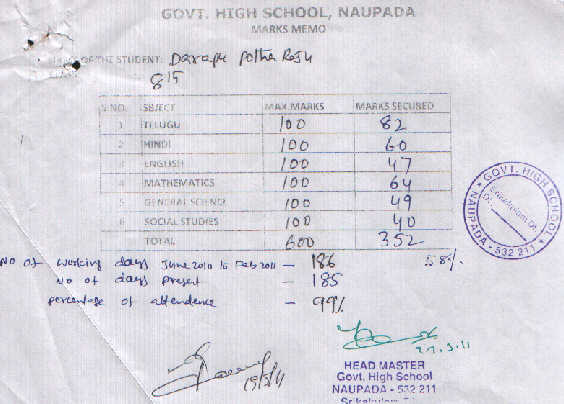 GOVT. HIGH SCHOOL, NAUPADA
MARKS MEMO
OF THE STUDENT: Potha Raju
S.NO. SBJECT MAX.MARKS MARKS SECURED
1 TELUGU 100 82
2 HINDI 100 60
3 ENGLISH 100 47
4 MATHEMATICS 100 64
5 GENERAL SCIENC 100 49
6 SOCIAL STUDIES 100 40
TOTAL 600 352
No of working days June 2010 to Feb 2011 - 186 58%
No of days present - 185
percentage of attendence - 99%
GOVT. HIGH SCHOOL
Srikakulam Dt.
NAUPADA - 532 211
HEAD MASTER
Govt. High School
NAUPADA - 532 211